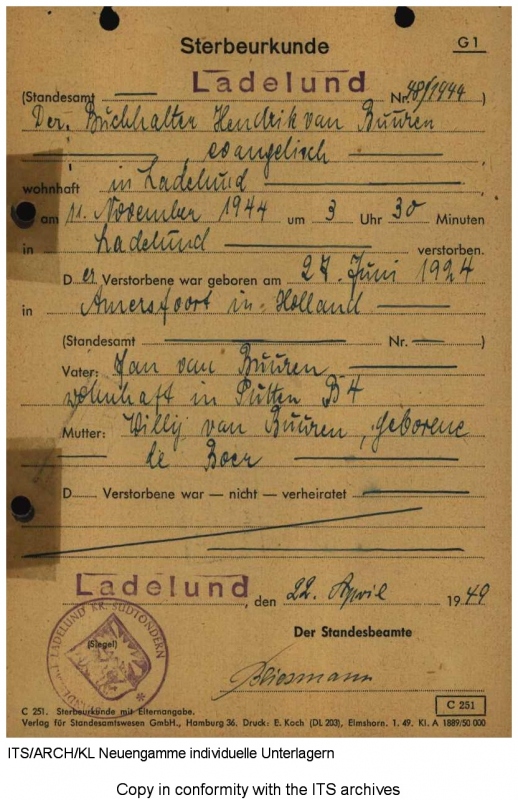 Sterbeurkunde
G 1
(Standesamt — Ladelund Nr. 48/1944 )
Der Buchhalter Hendrik van Buuren
evangelisch
wohnhaft in Ladelund
am 11. November 1944 um 3 Uhr 30 Minuten
in Ladelund verstorben.
D er Verstorbene war geboren am 27. Juni 1924
in Amersfoort in Holland
(Standesamt — Nr. — )
Vater: Jan van Buuren
wohnhaft in Putten B 4
Mutter: Willij van Buuren, geborene
de Boer
D Verstorbene war — nicht — verheiratet
Ladelund, den 22. April 1949
Der Standesbeamte
(Siegel)
LADELUND KR. SÜDTONDERN
C 251
C 251. Sterbeurkunde mit Elternangabe.
Verlag für Standesamtswesen GmbH., Hamburg 36. Druck: E. Koch (DL 203), Elmshorn. 1. 49. Kl. A 1889/50 000
ITS/ARCH/KL Neuengamme individuelle Unterlagern
Copy in conformity with the ITS archives